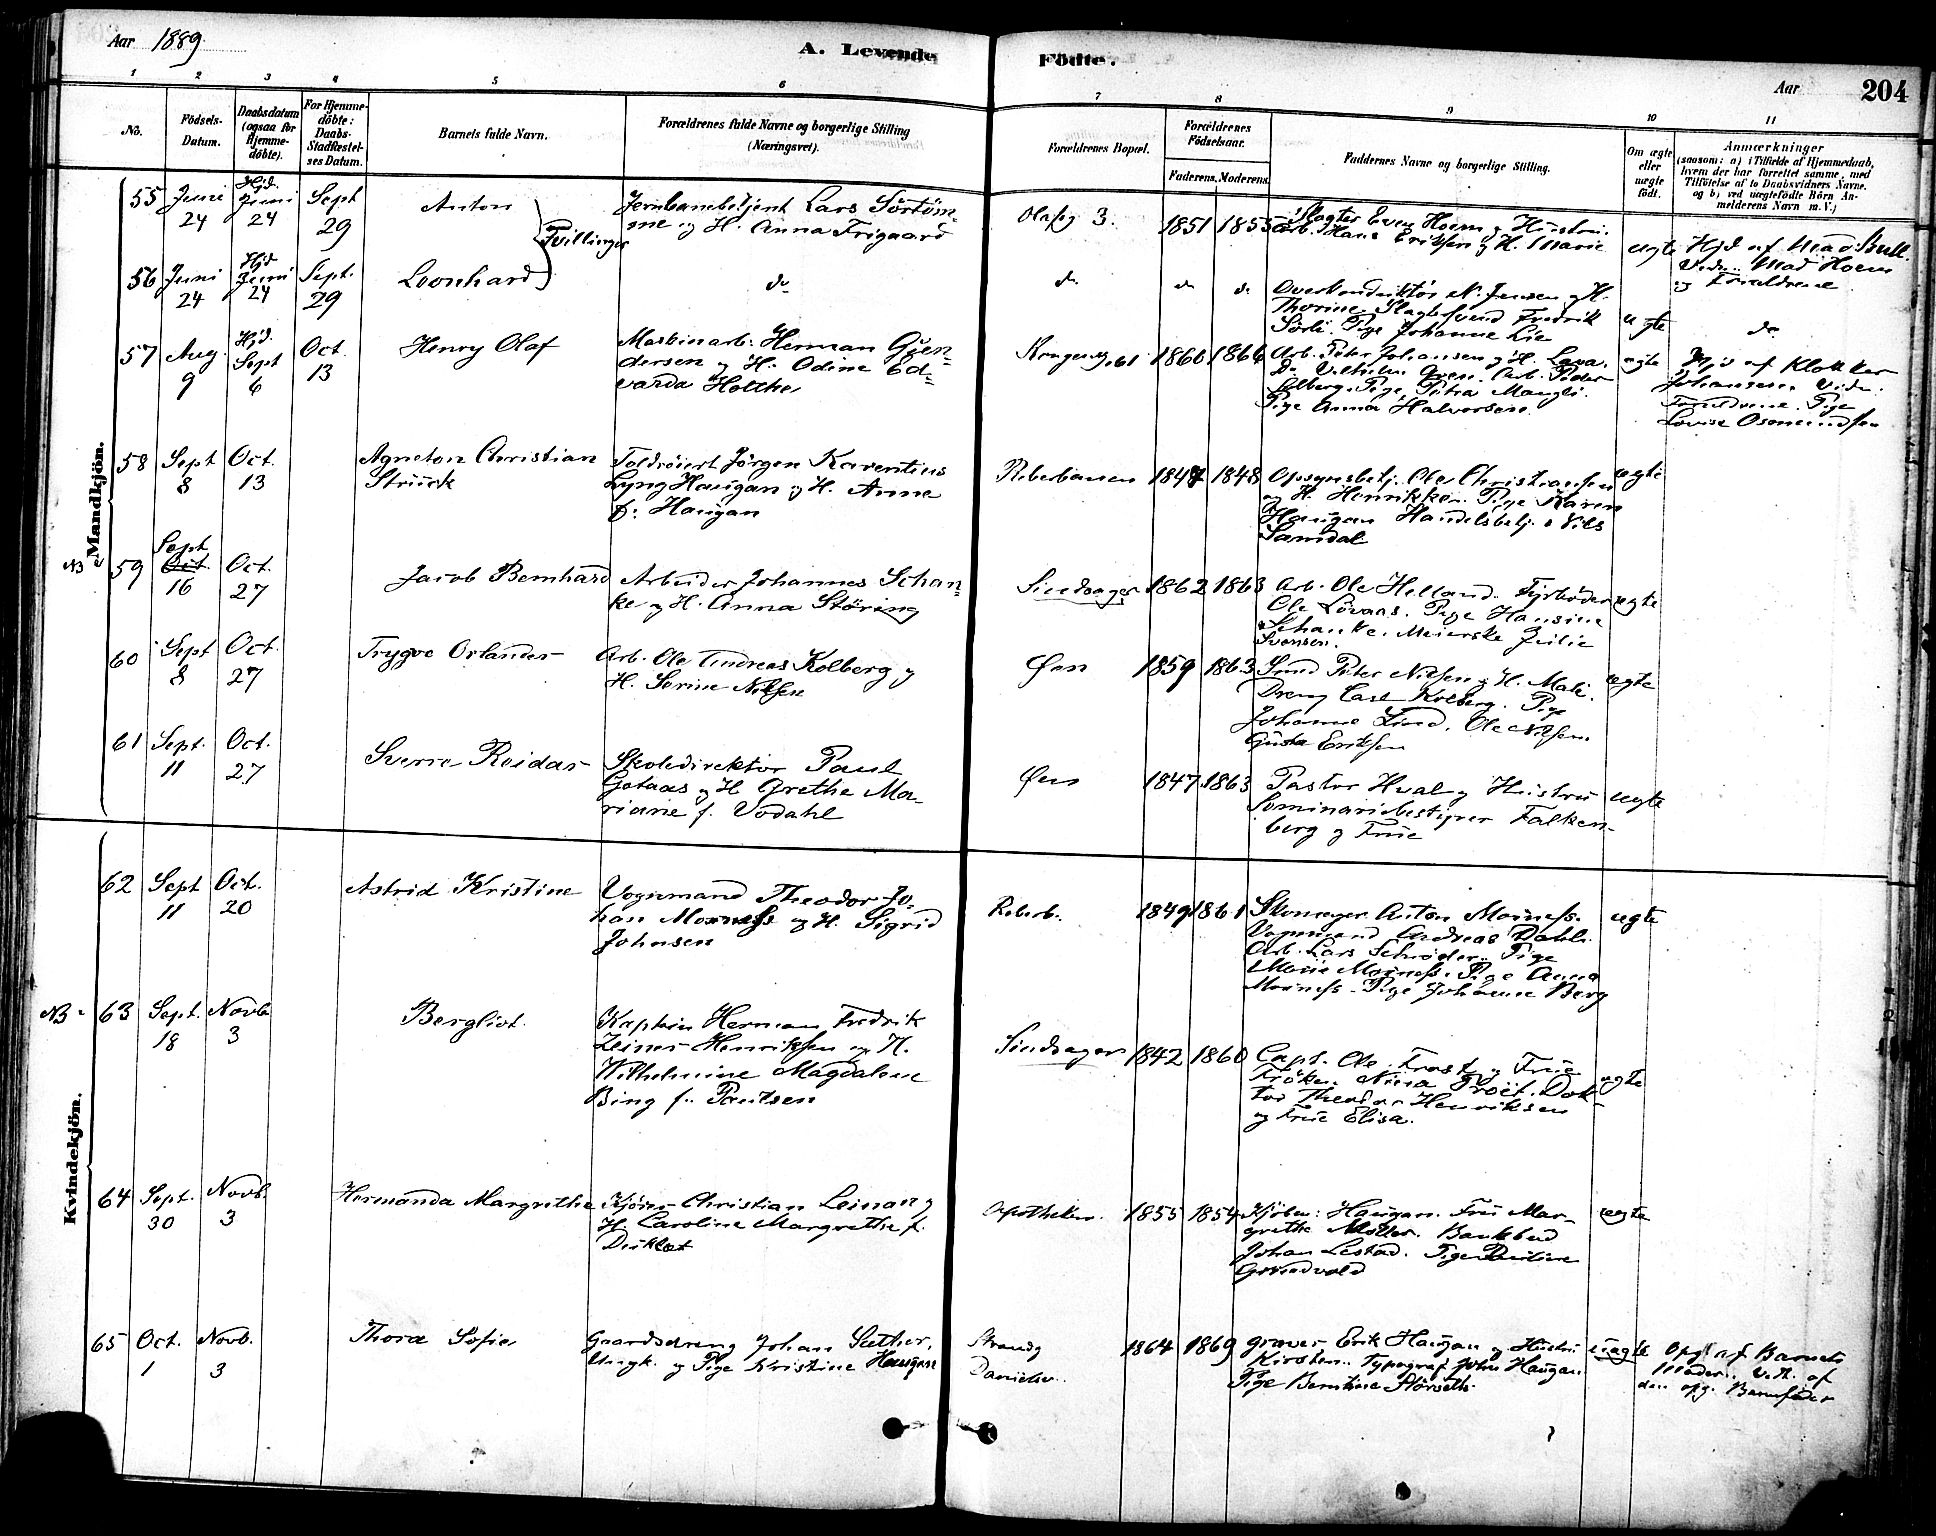 Aar 1889
A. Levende Fødte.
Aar 204
1 2 3 4 5 6 7 8 9 10 11
No.
Fødsels-Datum.
Daabsdatum (ogsaa for Hjemme-døbte).
For Hjemme-døbte: Daabs-Stadfæstel-ses Datum.
Barnets fulde Navn.
Forældrenes fulde Navne og borgerlige Stilling
(Næringsvei).
Forældrenes Bopæl.
Forældrenes Fødselsaar.
Faderens. Moderens.
Faddernes Navne og borgerlige Stilling.
Om ægte eller uægte født.
Anmærkninger
(saasom: a) i Tilfælde af Hjemmedaab,
hvem der har forrettet samme, med
Tilføielse af to Daabsvidners Navne,
og b) ved uægtefødte Børn An-
melderens Navn m. V.)
Mandkjøn.
55 Juni 24 Hjd. Juni 24 Sept 29 Anton
Tvillinger
Jernbanebetjent Lars Sörtöm-
me og H. Anna Frigaard
Olafsg 3. 1851 1855
Slagter Even Hoem og Hustru.
Arb. Hans Eriksen og H. Marie
ægte
Hjd af Mad. Bull.
Vidn: Mad Hoem
og Forældrene
56 Juni 24 Hjd Juni 24 Sept. 29 Leonhard
do
do do do
Overkonduktör N. Jensen og H.
Thorine. Slagtersvend Fredrik
Sörli. Pige Johanne Lie
ægte do
57 Aug. 9 Hjd. Sept 6 Oct. 13 Henry Olaf
Maskinarb: Herman Gjen-
dersen og H. Odine Ed-
varda Holthe
Kongensg. 61 1860 1864
Arb. Peter Johansen og H. Lava.
Do Vilhelm Aven. Arb. Peder
Solberg. Pige Petra Maugli.
Pige Anna Halvorsen.
ægte
Hjd af Klokker
Johansen. Vidn:
Forældrene. Pige
Lovise Osmundsen
58 Sept 8 Oct. 13 Agneton Christian
Struck
Toldrörert Jörgen Kaventius
Lyng Haugan og H. Anne
f: Haugan
Reberbanen 1847 1848
Opsynsbetj. Ole Christiansen
og H. Henrikke. Pige Karen
Haugan Handelsbetj. Nils
Samdal
ægte
NB 59 Sept Oct. 16 Oct. 27 Jacob Bernhard
Arbeider Johannes Schan-
ke og H. Anna Störing
1862 1863
Arb. Ole Helland. Fyrböder
Ole Lövaas. Pige Hansine
Schanke. Meierske Zeilie
Svensen.
ægte
60 Sept 8 Oct. 27 Trygve Orlander
Arb. Ole Andreas Kolberg og
H. Serine Nilsen
Öen 1859 1863
Smed Peter Nilsen og H. Mali.
Dreng Carl Kolberg. Pige
Johanne Lund. Ole Nilsen.
Gusta Eriksen
ægte
61 Sept. 11 Oct. 27 Sverre Reidar
Skoledirektör Paul
Gotaas og H Grethe Ma-
riane f. Vodahl
Öen 1847 1863
Pastor Hval og Hustru
Seminariebestyrer Falken-
berg og Frue
ægte
Kvindekjøn.
62 Sept 11 Oct. 20 Astrid Kristine
Vognmand Theodor Jo-
han Moxness og H. Sigrid
Johnsen
Reberb. 1849 1861
Skomager Anton Moxness.
Vognmand Andreas Dahl.
Arb. Lars Schröder. Pige
Marie Moxness. Pige Anna
Moxness. Pige Johanne Berg
ægte
NB 63 Sept. 18 Novb 3 Bergliot.
Kaptein Herman Fredrik
Zeiner Henriksen og H.
Wilhelmine Magdalene
Bing f. Paulsen
1842 1860
Capt. Ole Frost og Frue
Fröken Nina Frost. Dok-
tor Theodor Henriksen
og Frue Elisa.
ægte
64 Sept. 30 Novb. 3 Hermanda Margrethe
Christian Leinan og
H. Caroline Margrethe f.
Apotheken. 1855 1854
Kjöbm: Haugan. Fru Mar-
grethe Möller. Bankbud
Johan Lestad. Pige Pauline
Grundvold
ægte
65 Oct. 1 Novb. 3 Thora Sofie
Gaardsdreng Johan Sæther,
Ungk. og Pige Kristine Haugan
Strandg
1864 1869
Graver Erik Haugan og Hustru
Kirsten. Typograf John Haugan.
Pige Berntine Störseth
uægte
Opg. af Barnets
Moder. Vidt. af
den opg. Barnefader